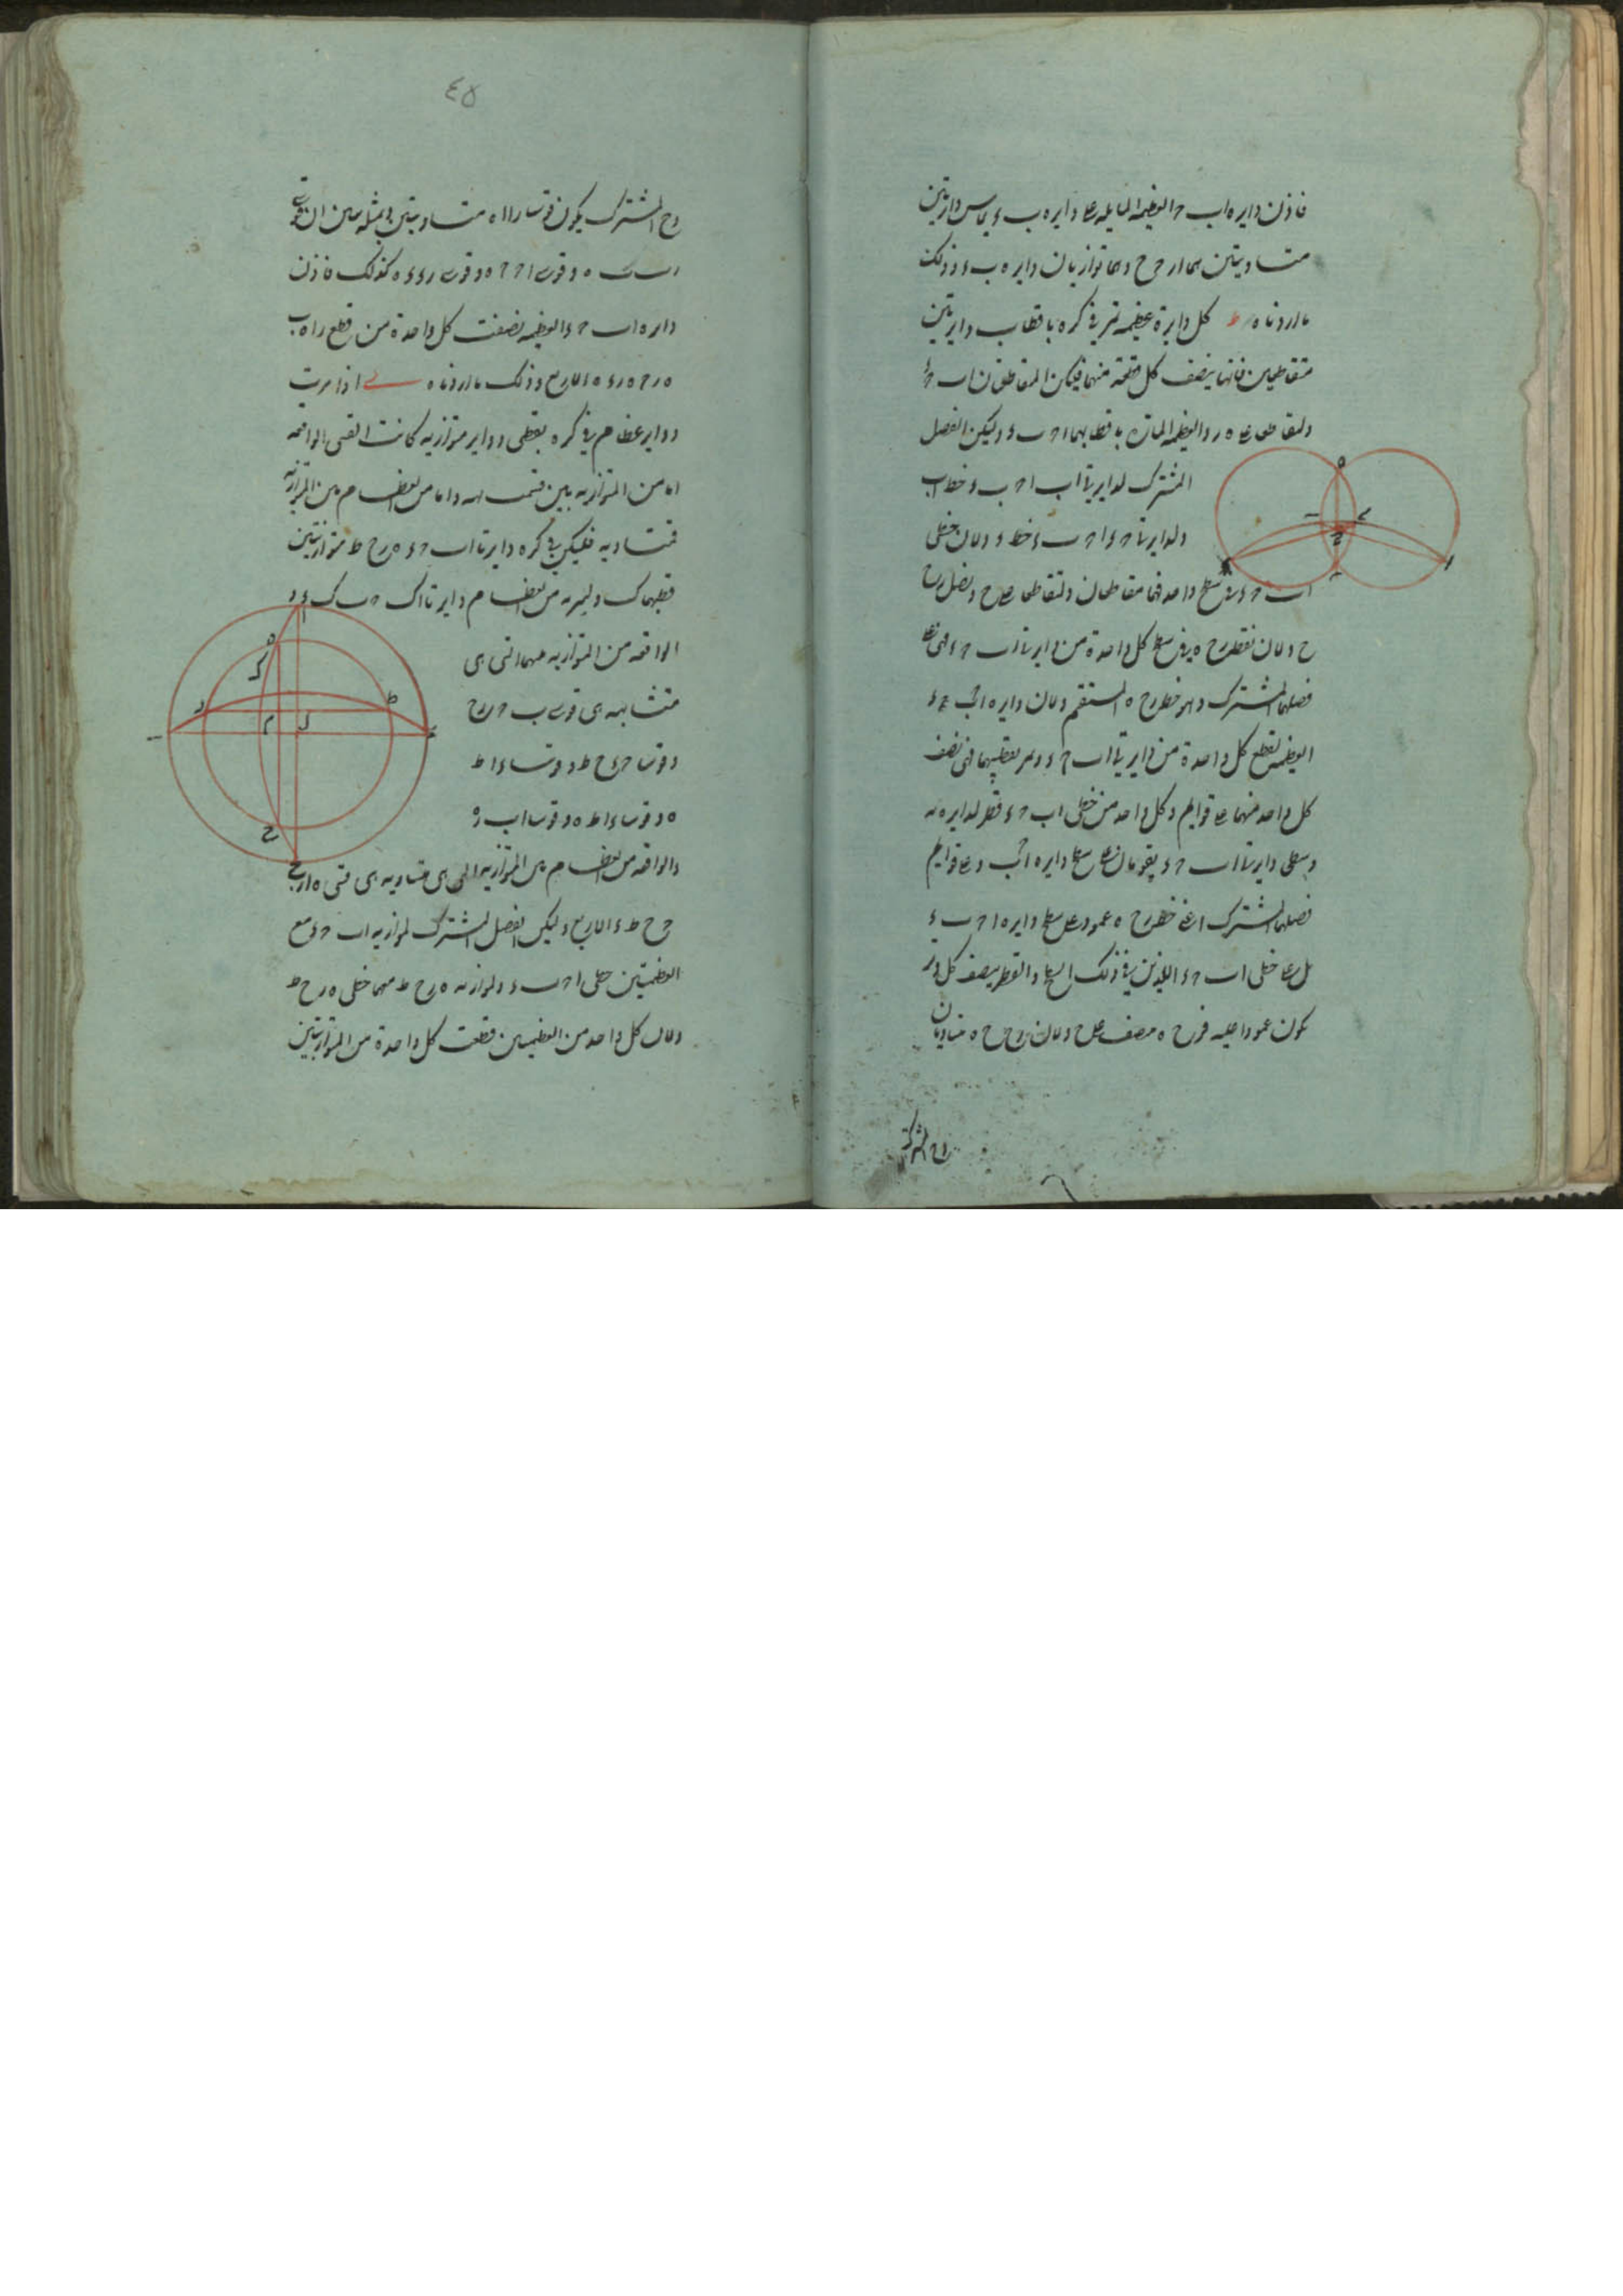 فاذن دايره اب ح العظيمه المايله على دايره ب ء يماس دايرتين
متساويتين هما ار ح ح وهما توازيان دايره ب ء وذلك
ما اردناه ط كل دايرة عظيمه تمر في كره باقطاب دايرتين
متقاطعتين فانها ينصف كل قطعة منهما فليكن المتقاطعان اب ح ء
ولتقاطعا على ه ر والعظيمه الماره باقطابهما ا ح ب ء وليكن الفصل
المشترك لدايرتي اب ا ح ب ء خط اب
ولدايرتا ح ء ا ح ب ء خط ح ء ولان خطى
اب ح ء في سطح واحد فهما متقاطعان ولتقاطعا على ح ونصل رح
ح ه ولان نقط رح ه في سطح كل واحدة من دايرتا اب ح ء فهي على
فصلهما المشترك وهو خط رح ه المستقيم ولان دايره ا ح ب ء
العظيمه تقطع كل واحدة من دايرتي اب ح ء وتمر بقطبيهما فهي تنصف
كل واحد منهما على قوايم وكل واحد من خطى اب ح ء قطر لدايرته
وسطحى دايرتا اب ح ء يقومان على سطح دايره ا ح ب ء على قوايم
فصلهما المشترك اعنى خط رح ه عمود على سطح دايره ا ح ب ء
بل على خطى اب ح ء اللذين في ذلك السطح والقطر ينصف كل وتر
يكون عمودا عليه فرح ه منصف على ح ولان رح ح ه متساويان
وح المشترك
٤٥
وح المشترك يكون قوسا را ا ه متساويتين وبمثله نبين ان قوسى
رب ب ه وقوسى ر ح ح ه وقوسى ر ء ء ه كذلك فاذن
دايره ا ب ح ء العظيمه نصفت كل واحدة من قطع را ه ر ب
ه ر ح ه ر ء ه الاربع وذلك ما اردناه ى اذا مرت
دواير عظام في كره بقطبى دواير متوازيه كانت القسى الواقعه
اما من المتوازيه بين العظام فمتشابهه واما من العظام بين المتوازيه
فمتساويه فليكن في كره دايرتا اب ح ء ه ر ح ط متوازيتين
قطبهما ك وليمر به من العظام دايرتا ا ك ح ب ك ء و
الواقعه من المتوازيه منهما التى هى
متشابهه هى قوسى ب ح ر ح
وقوسا ح ء ح ط وقوسا ء ا ط
ه وقوسا ا ب ه ر
والواقعه من العظام بين المتوازيه التى هى متساويه هى قسى ه ا ر ب
ح ح ط ء الاربع وليكن الفصل المشترك لموازيه اب ح ء مع
العظيمتين خطى ا ح ب ء ولموازيه ه ر ح ط معهما خطى ه ح ر ط
ولان كل واحد من العظيمتين قطعت كل واحدة من المتوازيتين